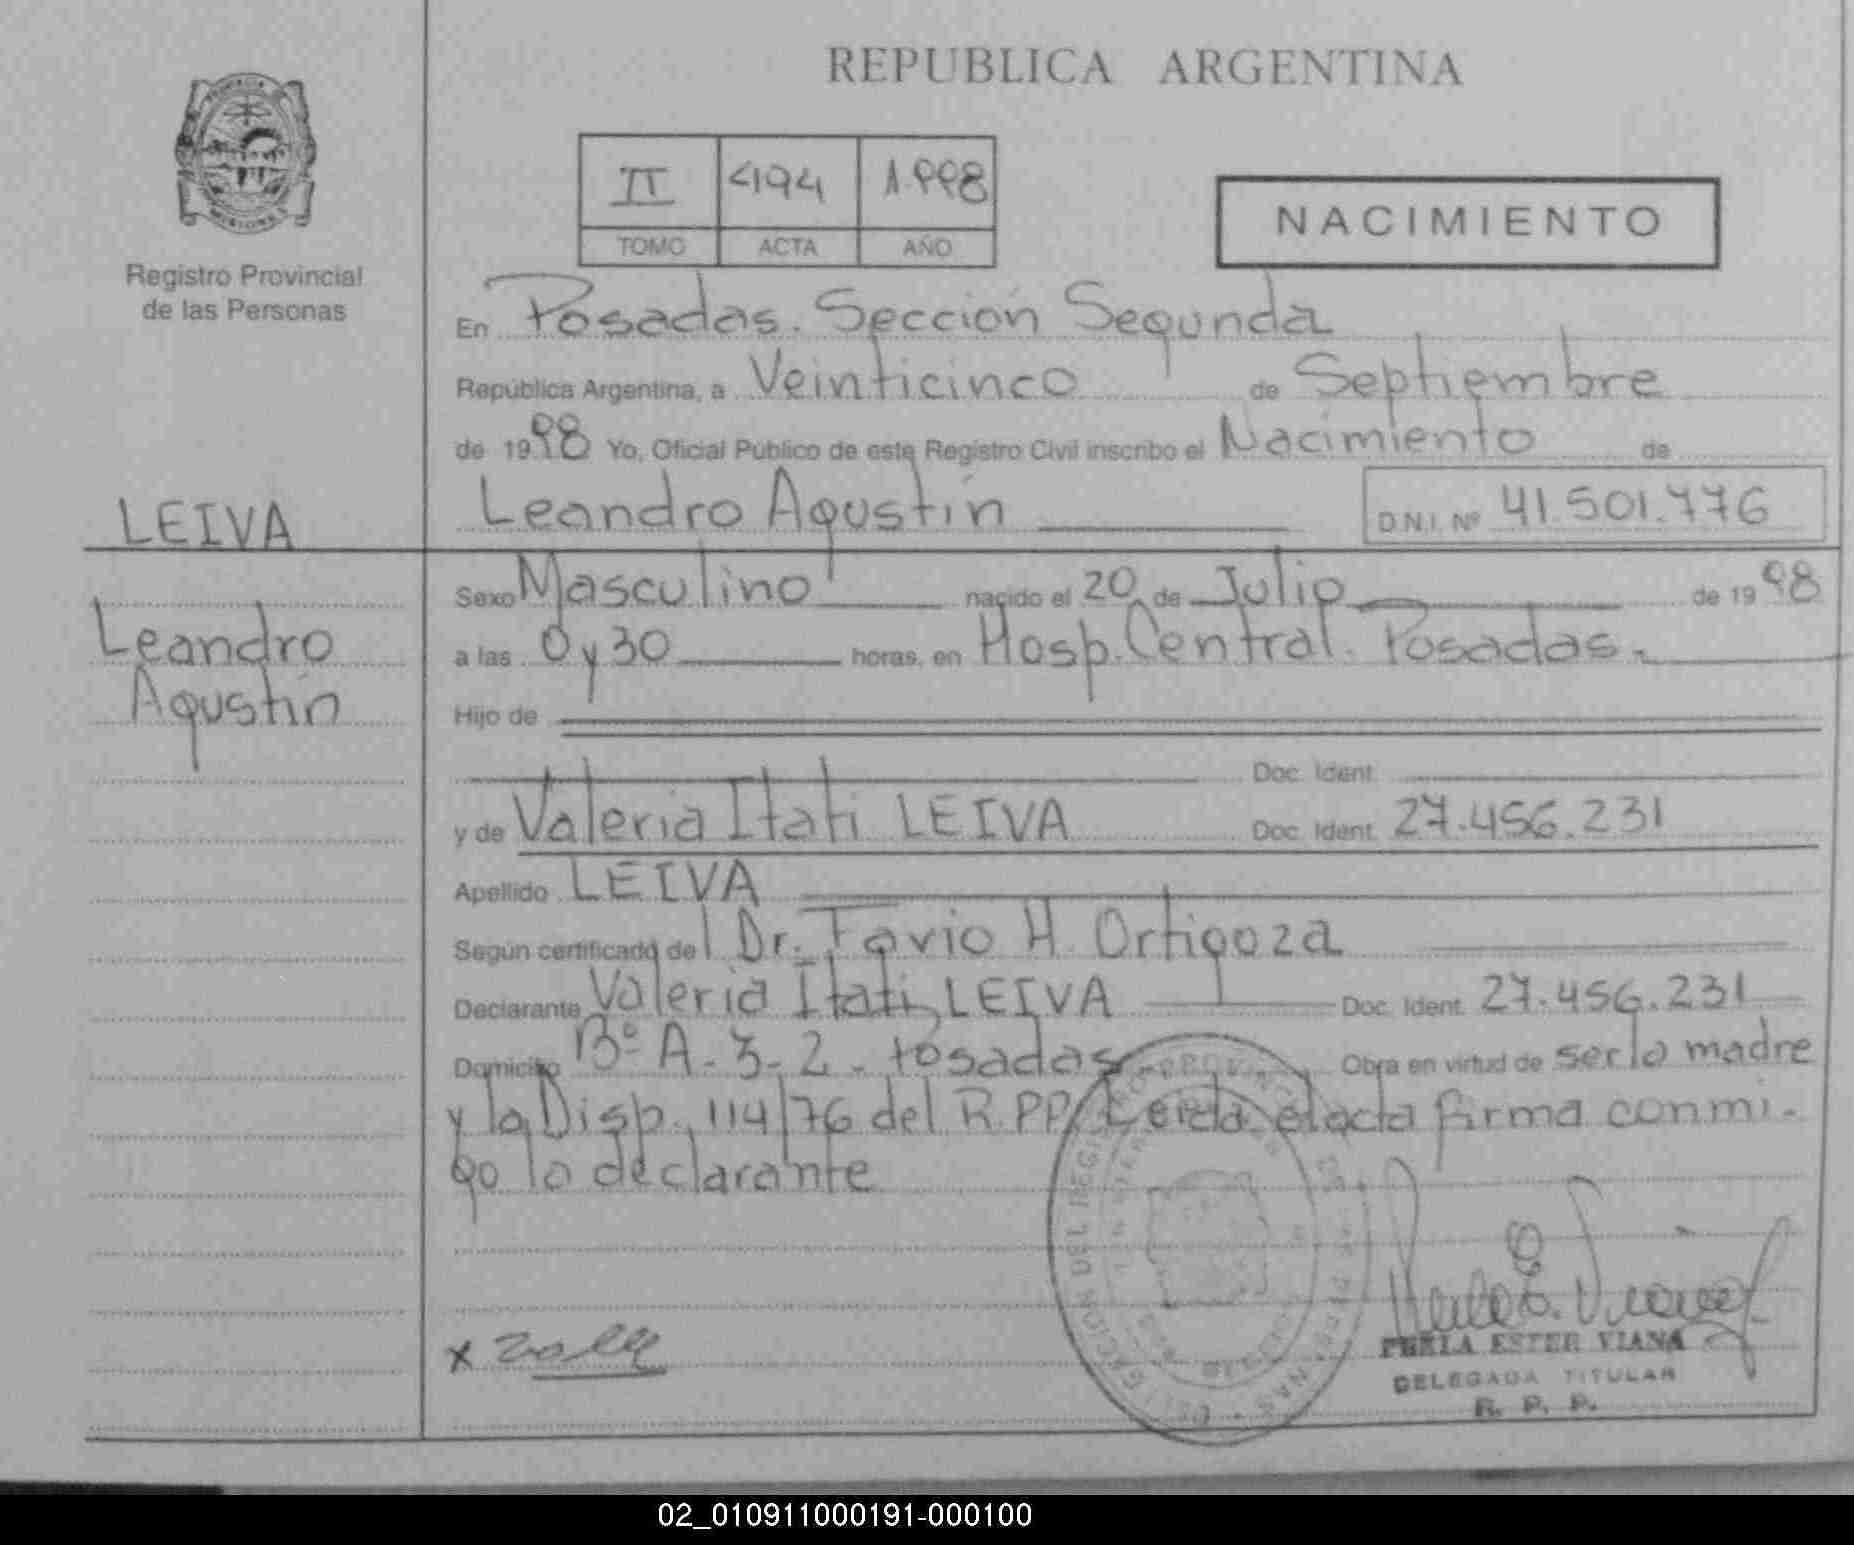 REPUBLICA ARGENTINA
II 494 1998
TOMO ACTA AÑO
NACIMIENTO
Registro Provincial
de las Personas
En Posadas. Sección Segunda
República Argentina, a Veinticinco de Septiembre
de 1998 Yo, Oficial Público de este Registro Civil inscribo el Nacimiento de
Leandro Agustín D.N.I. Nº 41.501.776
LEIVA
Leandro
Agustín
Sexo Masculino nacido el 20 de Julio de 1998
a las 0 y 30 horas, en Hosp. Central. Posadas.
Hijo de
Doc. Ident.
y de Valeria Itatí LEIVA Doc. Ident. 27.456.231
Apellido LEIVA
Según certificado del Dr. Favio H. Ortigoza
Declarante Valeria Itatí LEIVA Doc. Ident. 27.456.231
Domicilio Bº A-3-2- Posadas Obra en virtud de ser la madre
y la Disp. 114/76 del R.PP. Leída el acta firma conmi-
go la declarante
PERLA ESTER VIANA
DELEGADA TITULAR
R. P. P.
02_010911000191-000100